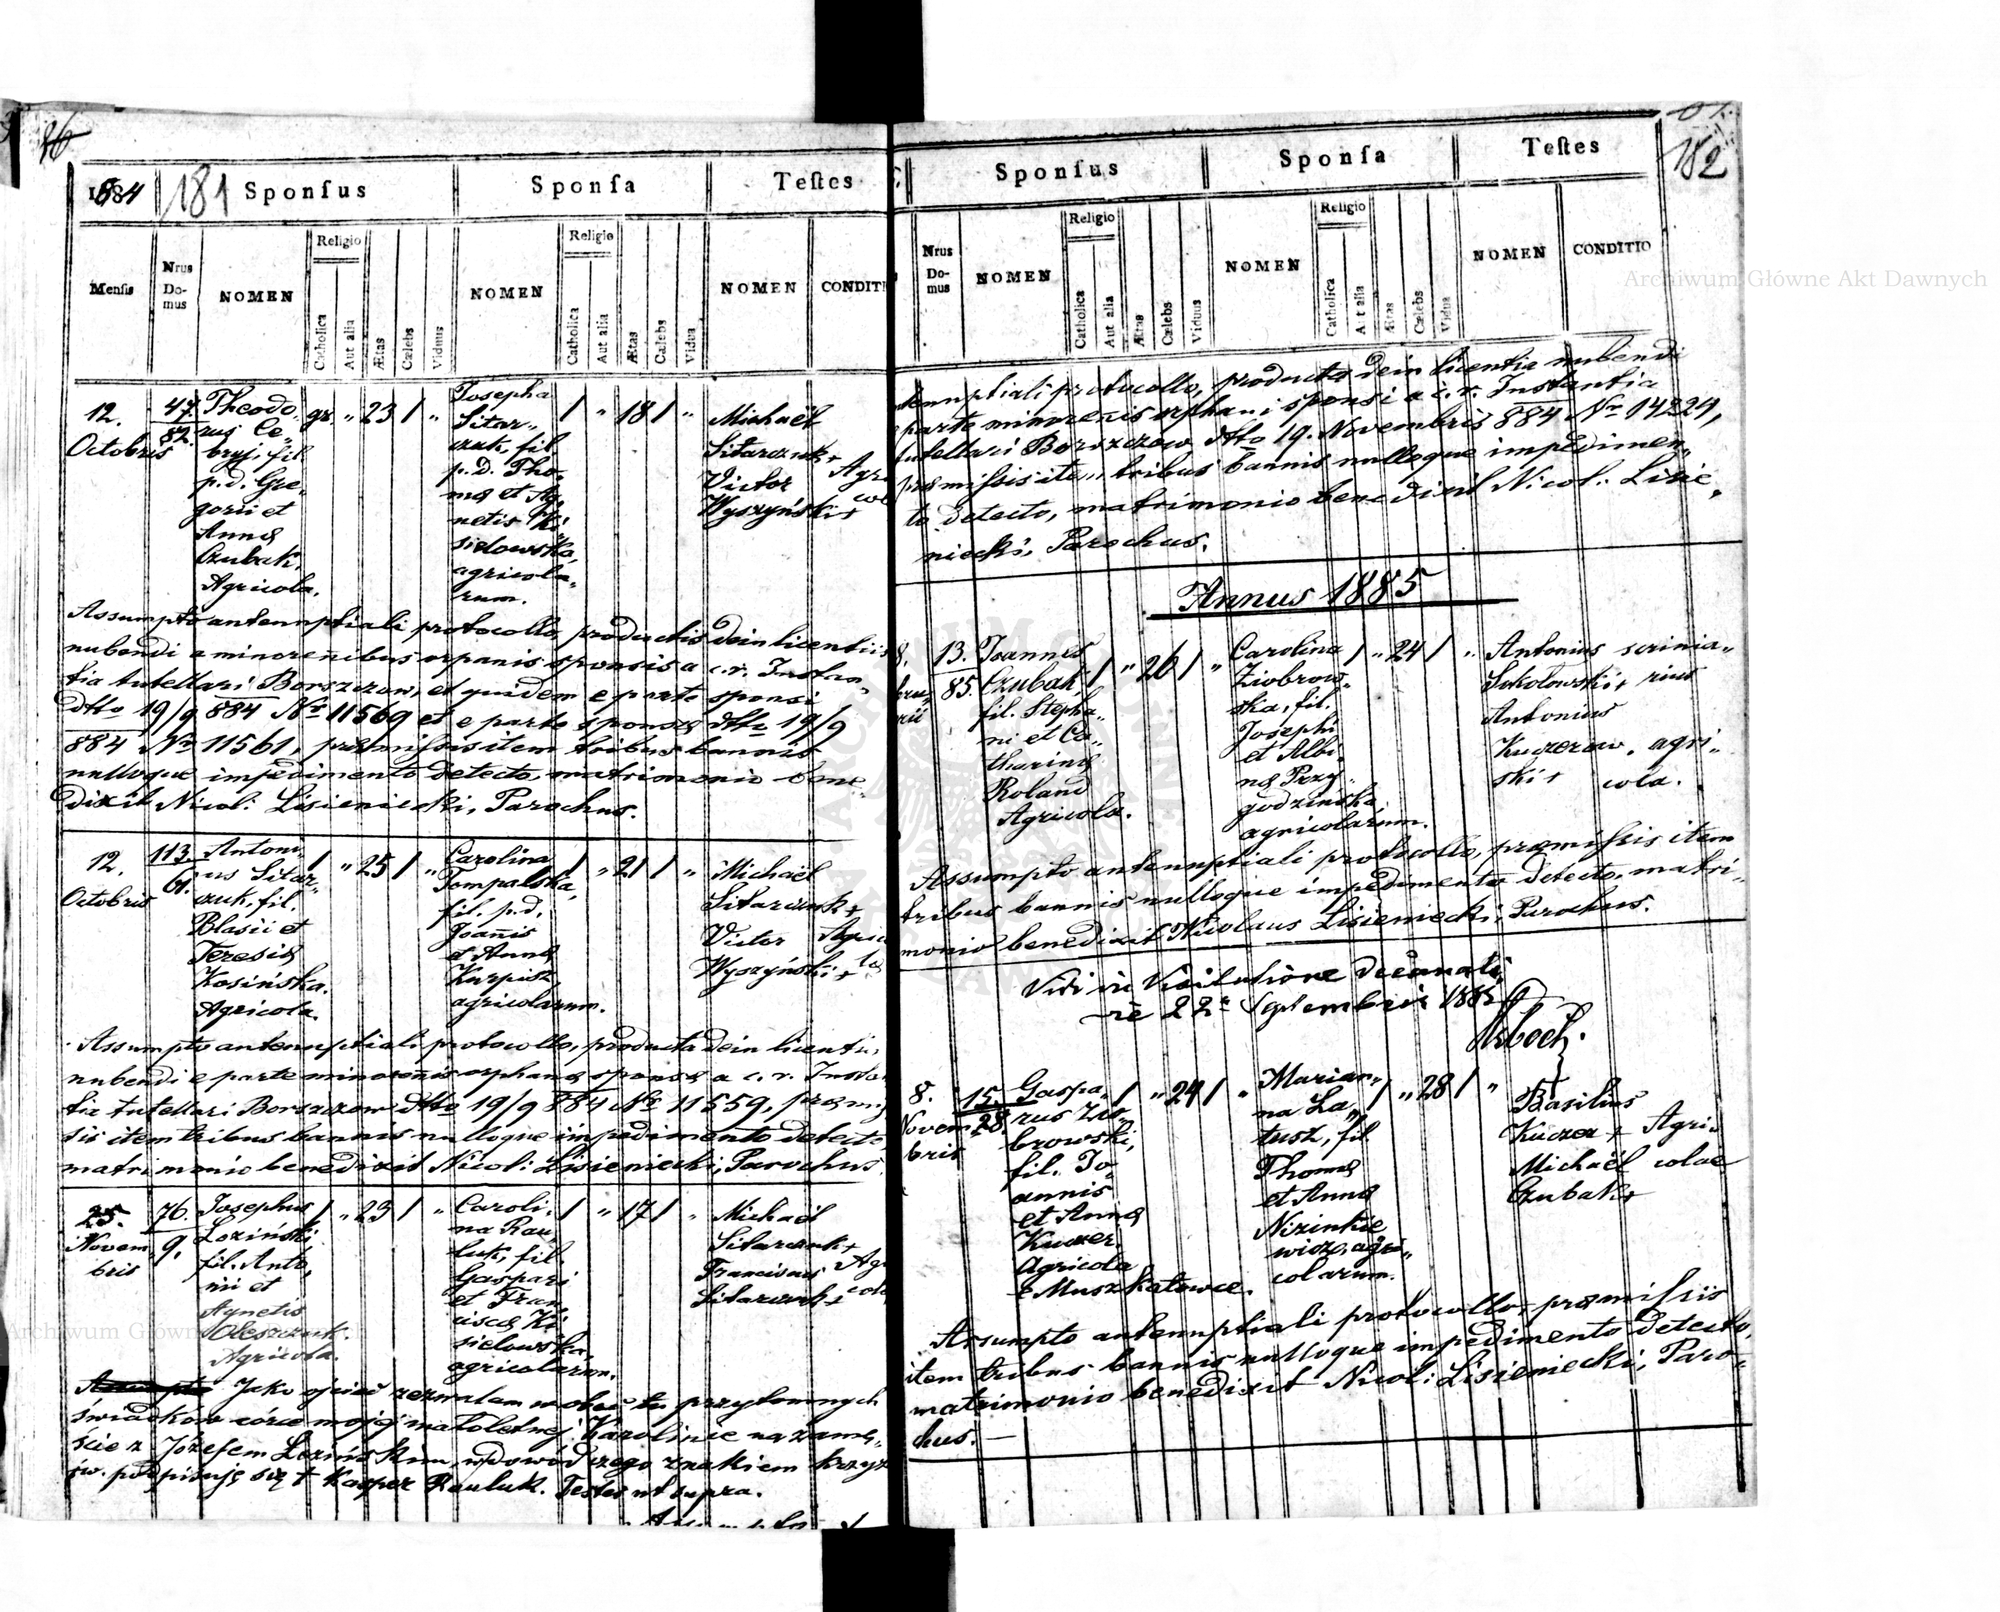 86
1884
181
Sponſus
Sponſa
Teſtes
Menſis
Nrus Do-mus
NOMEN
Religio
Catholica
Aut alia
Ætas
Cælebs
Viduus
NOMEN
Religio
Catholica
Aut alia
Ætas
Cælebs
Vidua
NOMEN
CONDITI
12.
Octobris
47.
82.
Theodo,
rus Ce,
bryj, fil
p.d. Gre,
gorii et
Anna
Czubak.
Agricola.
gr. " 23 / "
Josepha
Sitar,,
czuk, fil
p.d. Tho,
mæ et Ag,
netis Ki
sielowska
agricola,
rum.
/ " 18 / "
Michaël
Sitarczuk +
Victor
Wyszyński +
Agri
co
Assumpto antenuptiali protocollo, productis dein licentiis
nubendi a minorenibus orpanis sponsis a c. r. Instan,
tia tutellari Borszczow, et quidem e parte sponsi
dtto 19/9 884 No 11569 et e parte sponsæ dtto 19/9
884 No 11561, præmissis item tribus bannis
nulloque impedimento detecto, matrimonio bene,
dixit Nicol: Lisieniecki, Parochus.
12.
Octobris
113.
61.
Antoni,
us Sitar,,
czuk, fil.
Blasii et
Teresiæ
Kosińska.
Agricola.
/ " 25 / "
Carolina
Tompalska,
fil. p.d.
Joañis
et Annæ
Karpisz,
agricolarum.
/ " 21 / "
Michaël
Sitarczuk +
Victor
Wyszyński +
Agrico
læ
Assumpto antenuptiali protocollo, producta dein licentia,
nubendi e parte minorenis orphanæ sponsæ a c. r. Instan
tia tutellari Borszczow dtto 19/9 884 No 11559, præmis
sis item tribus bannis nulloque impedimento detecto
matrimonio benedixit Nicol: Lisieniecki, Parochus.
25.
Novem
bris
76.
9.
Josephus
Loziński
fil. Anto,
nii et
Agnetis
Oleszczuk.
Agricola.
/ " 29 / "
Caroli,
na Rau,
luk, fil.
Gaspari
et Fran
ciscæ Ki
sielowska,
agricolarum.
/ " 17 / "
Michaël
Sitarczuk +
Franciscus
Sitarczuk +
Agri
colæ
Jako ojciec zezwalam wobec tu przytomnych
świadków córce mojej małoletniej Karolinie na zamę,,
ście z Józefem Lozińskim, w dowód czego znakiem krzyż
św. podpisuję się + Kasper Rauluk. Testes ut supra.
Sponſus
Sponſa
Teſtes
182
Nrus Do-mus
NOMEN
Religio
Catholica
Aut alia
Ætas
Cælebs
Viduus
NOMEN
Religio
Catholica
Aut alia
Ætas
Cælebs
Vidua
NOMEN
CONDITIO
tenuptiali protocollo, producta dein licentia nubendi
parte minorenis orphani sponsi a c. r. Instantia
tutellari Borszczow dtto 19. Novembris 884 No 14229,
præmissis item tribus bannis nulloque impedimen,,
to detecto, matrimonio benedixit Nicol: Lisie,
niecki, Parochus.
Annus 1885
13.
85.
Joannes
Czubak
fil. Stepha,
ni et Ca,,
tharinæ
Roland
Agricola.
/ " 26 / "
Carolina
Ziobrow,,
ska, fil.
Josephi
et Albi,
næ Przy,,
godzińska,
agricolarum.
/ " 24 / "
Antonius scrinia,,
Sokolowski + rius
Antonius
Kuczerow, agri,,
ski + cola.
Assumpto antenuptiali protocollo, præmissis item
tribus bannis nulloque impedimento detecto, matri,,
monio benedixit Nicolaus Lisieniecki, Parochus.
Vidi in Visitatione decanali
Septembris 1885
8.
Novem
bris
15.
28.
Gaspa,
rus Zio,
browski,
fil. Jo,
annis
et Annæ
Kuczer.
Agricola
e Muszkatowce.
/ " 24 / "
Marian,,
na La,,
tusz, fil.
Thomæ
et Annæ
Nizinkie
wicz, agri,,
colarum.
/ " 28 / "
Basilius
Kuczer + Agri,,
Michaël colae
Czubak +
Assumpto antenuptiali protocollo, præmissis
item tribus bannis nulloque impedimento detecto,
matrimonio benedixit Nicol: Lisieniecki, Paro,
chus. —
Archiwum Główne Akt Dawnych